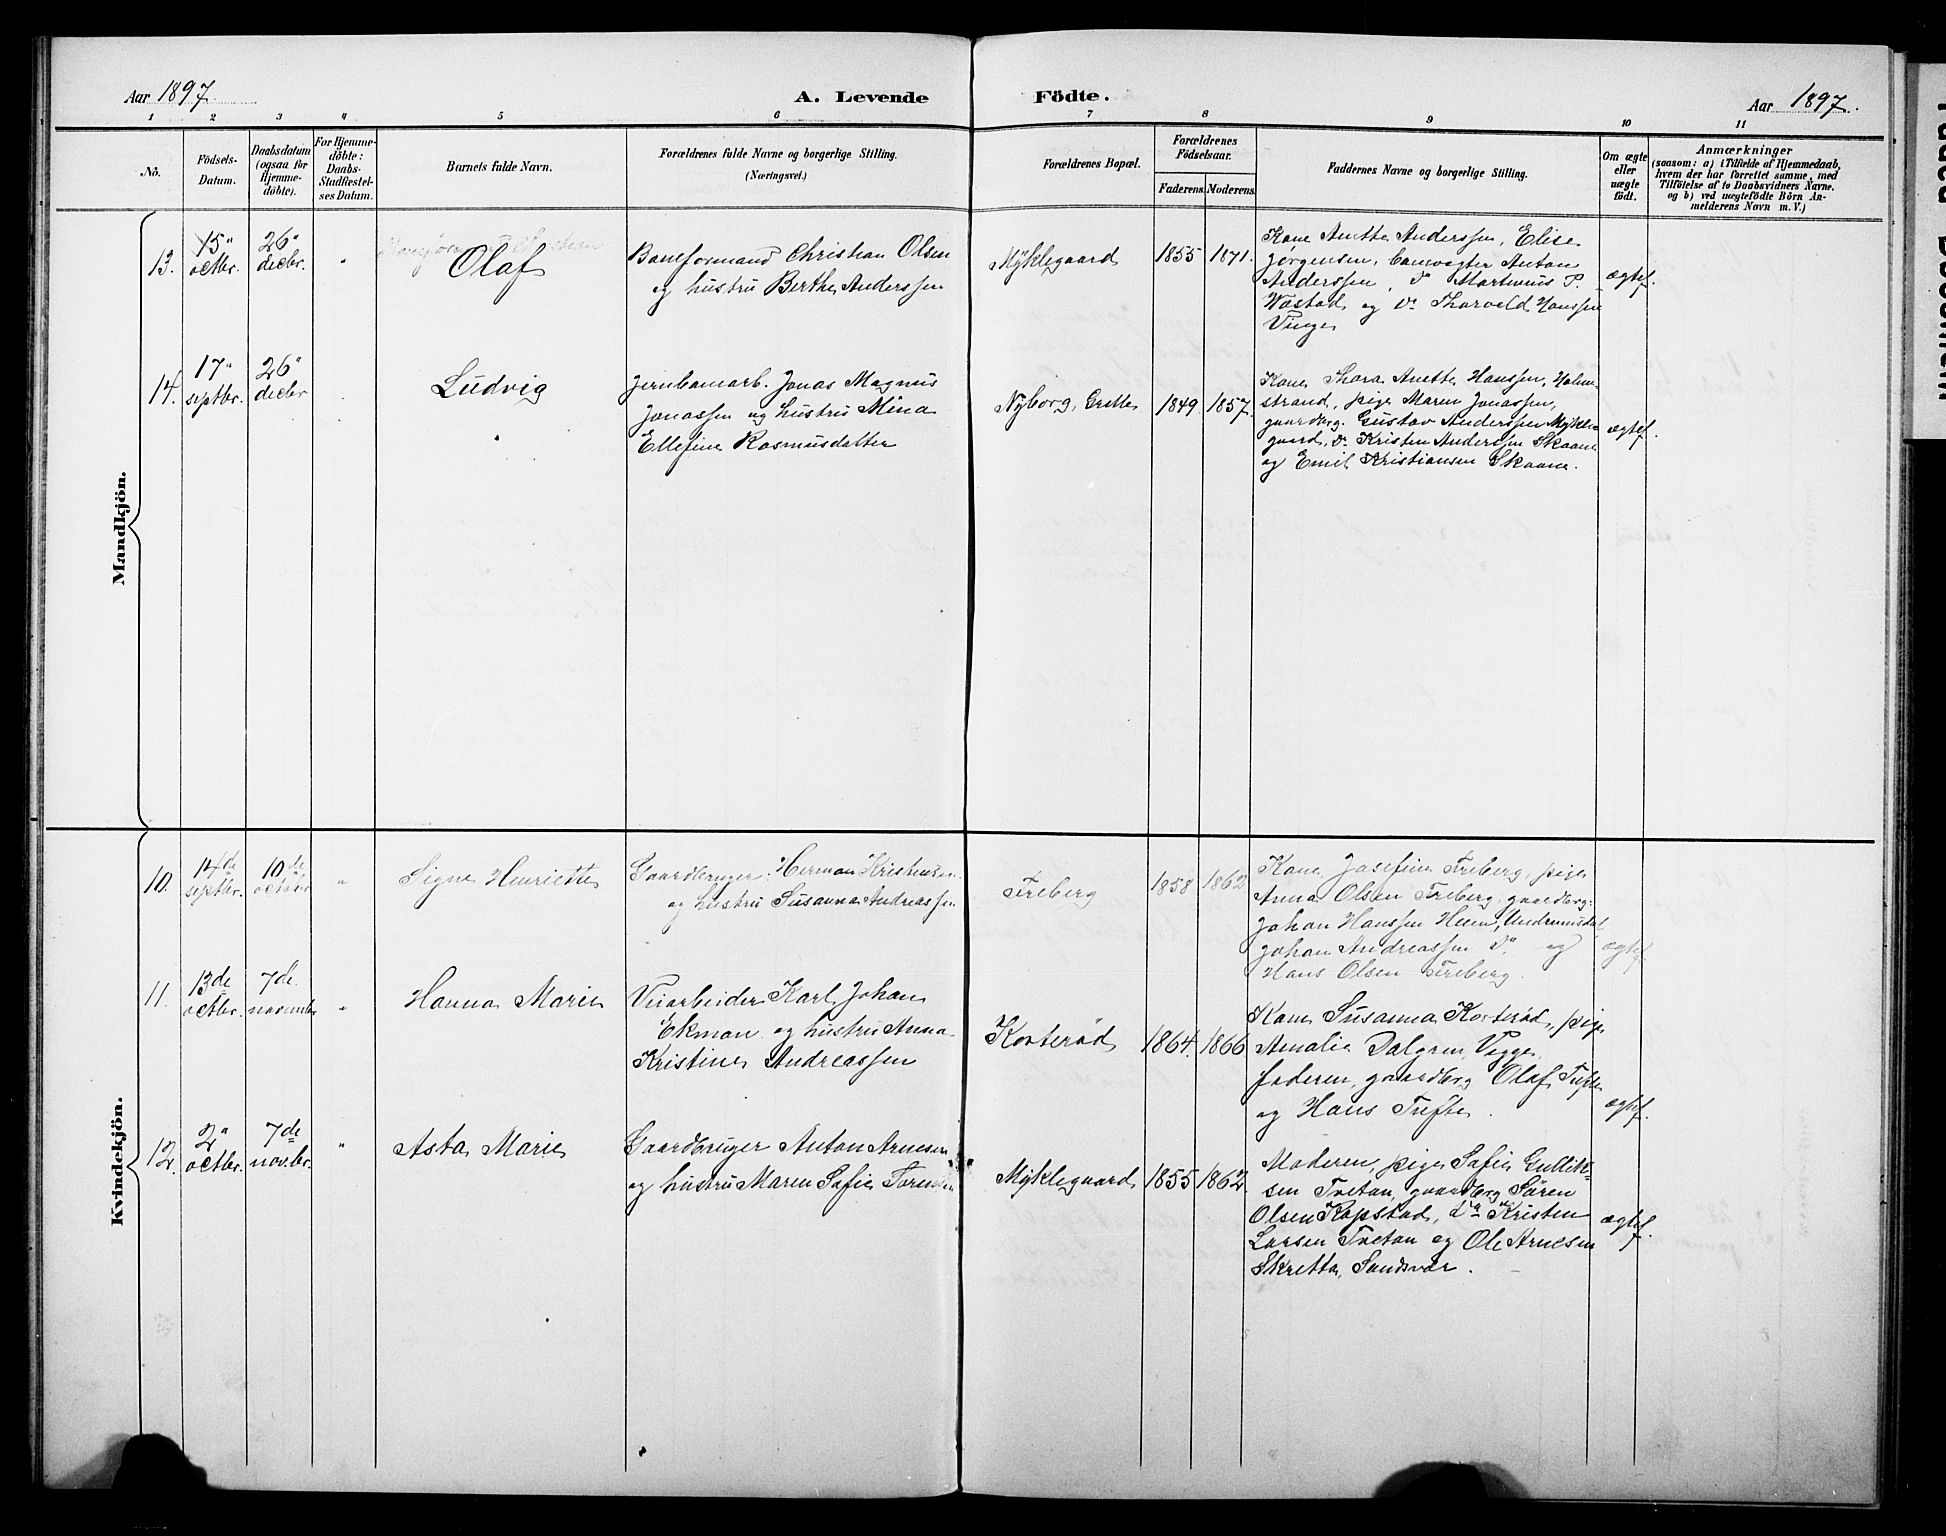 Aar 1897.
A. Levende Födte.
Aar 1897.
1 2 3 4 5 6 7 8 9 10 11
No.
Födsels-Datum.
Daabsdatum (ogsaa for Hjemme-döbte).
For Hjemme-döbte: Daabs-Stadfæstelses Datum.
Barnets fulde Navn.
Forældrenes fulde Navne og borgerlige Stilling.
(Næringsvei.)
Forældrenes Bopæl.
Forældrenes Födselsaar.
Faderens. Moderens.
Faddernes Navne og borgerlige Stilling.
Om ægte eller uægte födt.
Anmærkninger
(saasom: a) i Tilfælde af Hjemmedaab,
hvem der har forrettet samme, med
Tilföielse af to Daabsvidners Navne.
og b) ved uægtefödte Börn An-
melderens Navn m. V.)
Mandkjön.
13.
15" octbr.
26" decbr.
"
Olaf
Baneformand Christian Olsen
og hustru Berthe Anderssen
Myklegaard
1855 1871.
Kone Anette Anderssen, Elise
Jörgensen, banevogter Anton
Anderssen, do Martinius P.
Wæstad og do Thorvald Hanssen
Vinge
ægtef.
14.
17" septbr.
26" decbr
Ludvig
Jernbanearb. Jonas Magnus
Jonassen og hustru Mina
Ellefine Rasmusdatter
Nyborg, Grette
1849 1857.
Kone Thora Anette Hanssen, Holm-
strand, pige Maren Jonassen,
gaardbrg. Gustav Anderssen Mykle-
gaard, do Kristen Anderssen Skaane
og Emil Kristiansen Skaane.
ægtef.
Kvindekjön.
10.
14de septbr.
10de octobr
"
Signe Henriette
Gaardbruger Herman Kristiansen
og hustru Susanna Andreassen
Freberg
1858 1862
Kone Josefine Freberg, pige
Anna Olsen Freberg, gaardbrg:
Johan Hanssen Hem, Undrumsdal
Johan Andreassen do og
Hans Olsen Freberg.
ægtef
11.
13de octbr.
7de november
"
Hanna Marie
Veiarbeider Karl Johan
Ekman og hustru Anna
Kristine Andreassen
Korterød
1864. 1866
Kone Susanna Korterød, pige
Amalie Dalgren, Vegger,
faderen, gaardbrg Olaf Tufte
og Hans Tufte.
ægtef.
12.
2" octbr.
7de nov.br.
"
Asta Marie
Gaardbruger Anton Arnesen
og hustru Maren Sofie
Myklegaard
1855 1862.
Moderen, pige Sofie Gullik-
sen Tveten, gaardbrg Sören
Olsen Kopstad, do Kristen
Larsen Tveten og Ole Arnesen
Skretta, Sandsvær.
ægtef.